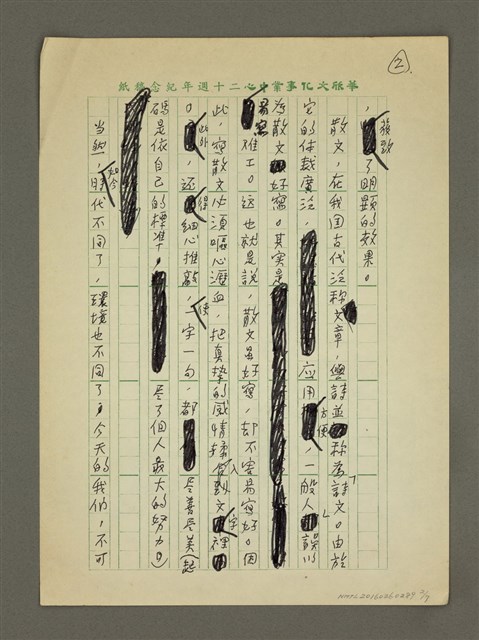 ②
華欣文化事業中心二十週年紀念稿紙
，獲致了明顯的效果。
散文，在我国古代泛称文章，與詩並称為「詩文」。由於
它的体裁廣泛，应用方便，一般人誤以
為散文好寫。其实是易寫
难工。这也就是說，散文虽好寫，却不容易寫好。因
此，寫散文必須嘔心瀝血，把真挚的感情揉入到文字裡
。此外，还得細心推敲，使一字一句，都尽善尽美（起
碼是依自己的標準，尽了個人最大的努力。）
当然，如今時代不同了，環境也不同了，今天的我们，不可
NMTL20160260289 2/9